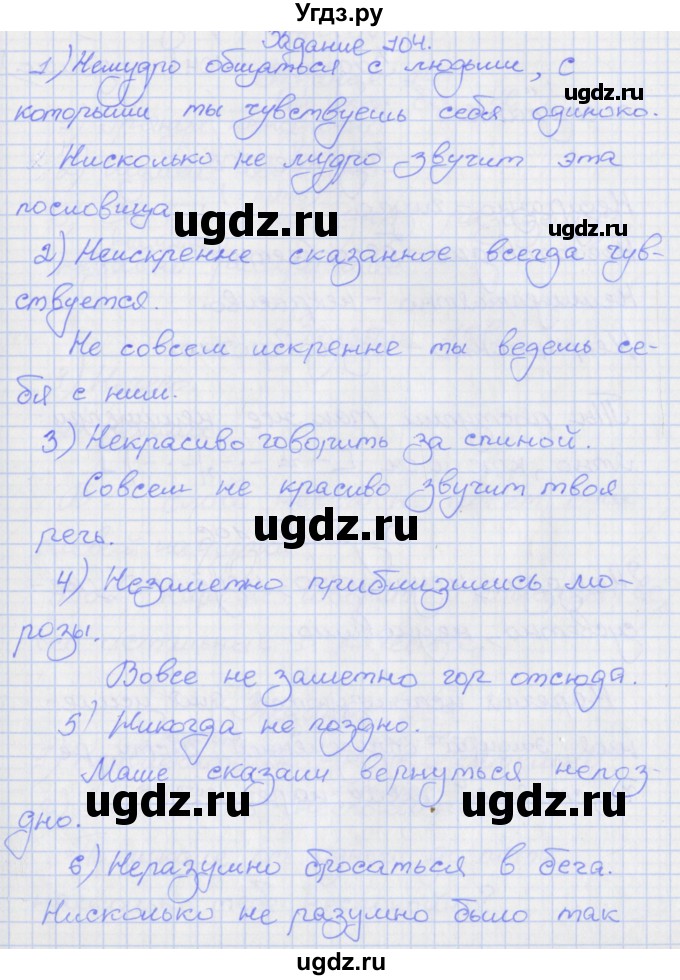 Угдз.ру
Задание 104.
1) Немудро общаться с людьми, с
ugdz.ru
которыми ты чувствуешь себя одиноко.
Нисколько не мудро звучит эта
пословица
ugdz.ru
ugdz.ru
2) Неискренне сказанное всегда чув-
ствуется.
Не совсем искренне ты ведешь се-
бя с ним.
ugdz.ru
3) Некрасиво говорить за спиной.
Совсем не красиво звучит твоя
речь.
ugdz.ru
4) Незаметно приблизились мо-
розы.
Вовсе не заметно гор отсюда.
5) Никогда не поздно.
Маше сказали вернуться непоз-
дно.
ugdz.ru
ugdz.ru
6) Неразумно бросаться в бега.
Нисколько не разумно было так
ugdz.ru